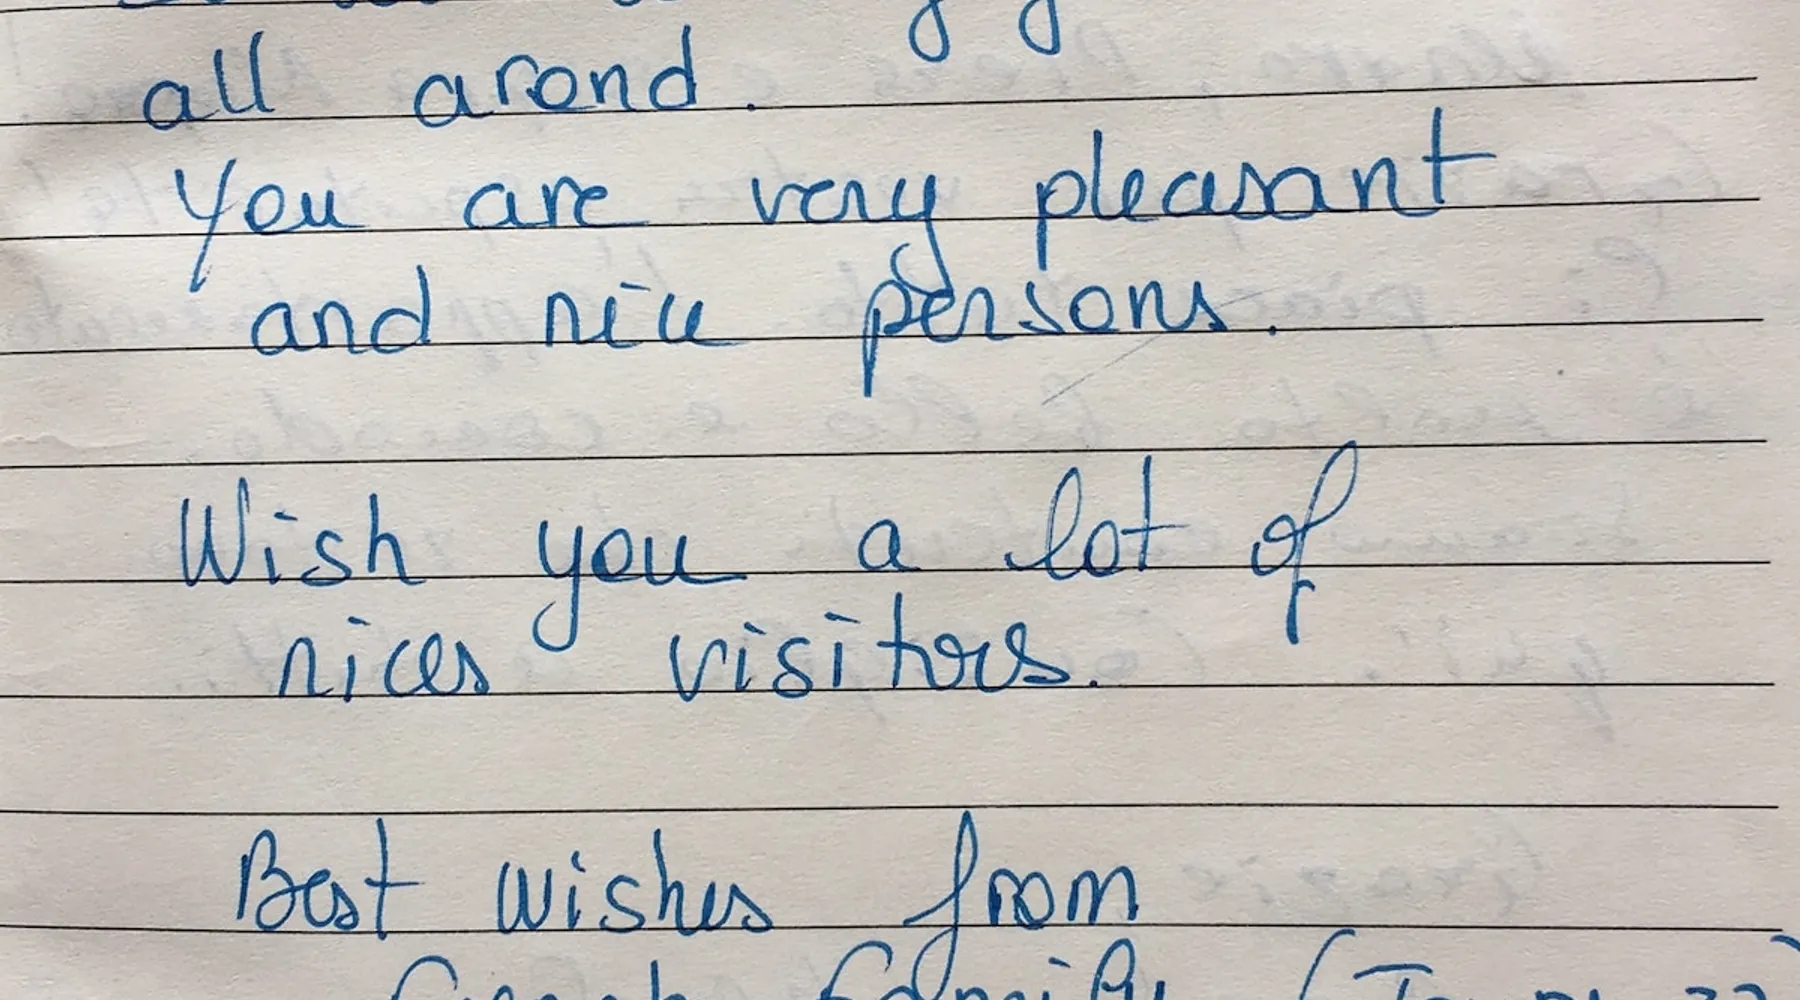 all arond.
You are very pleasant
and nice persons.
Wish you a lot of
nices visitors.
Best wishes from
family